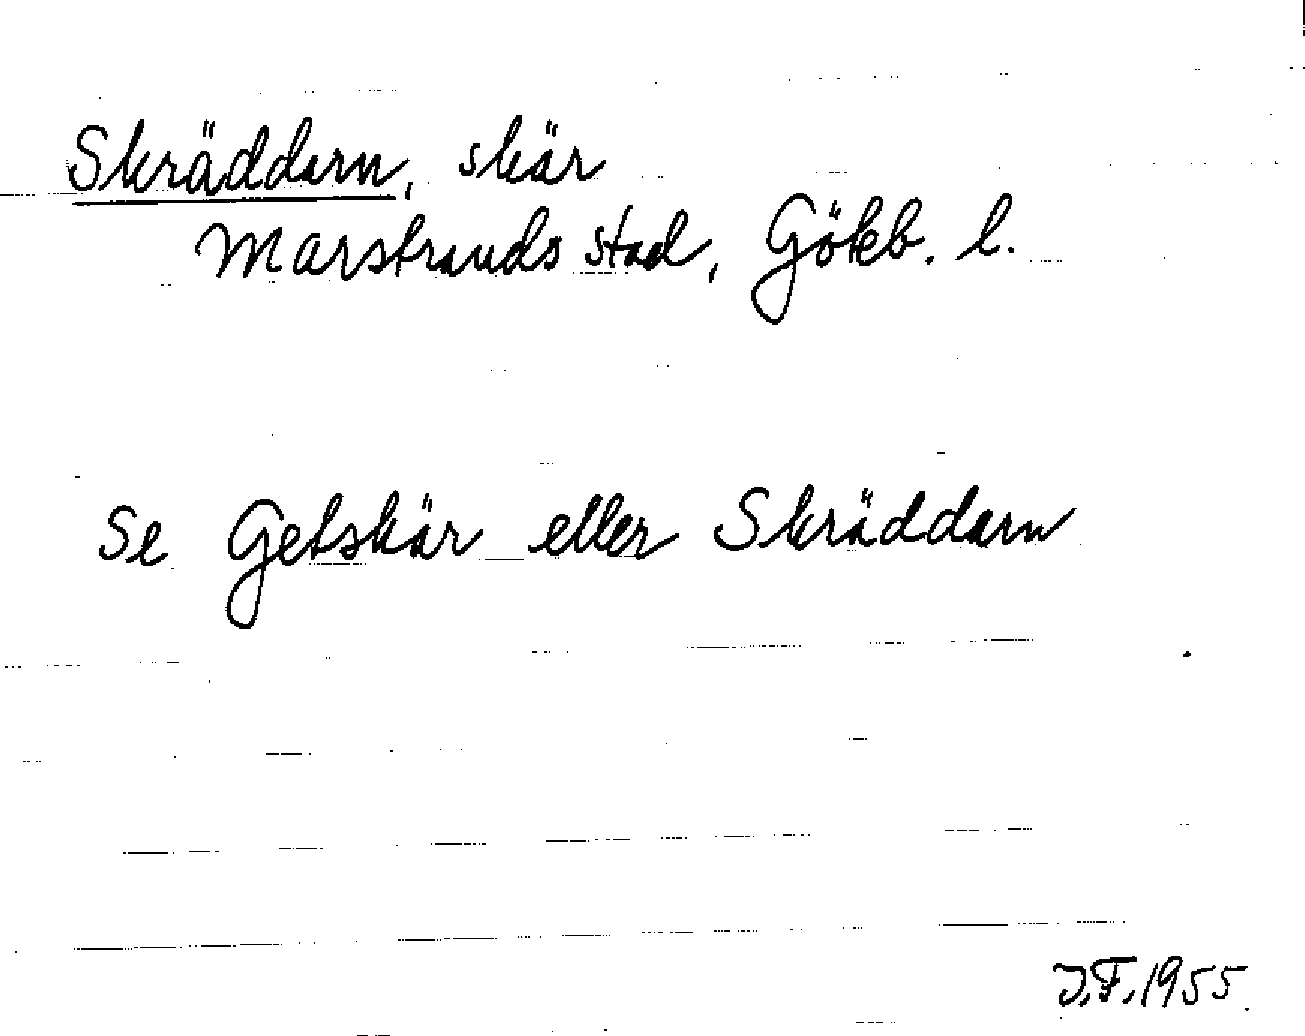 Skräddarn, skär
Marstrands stad, Göteb. l.
Se Getskär eller Skräddarn
J.F. 1955